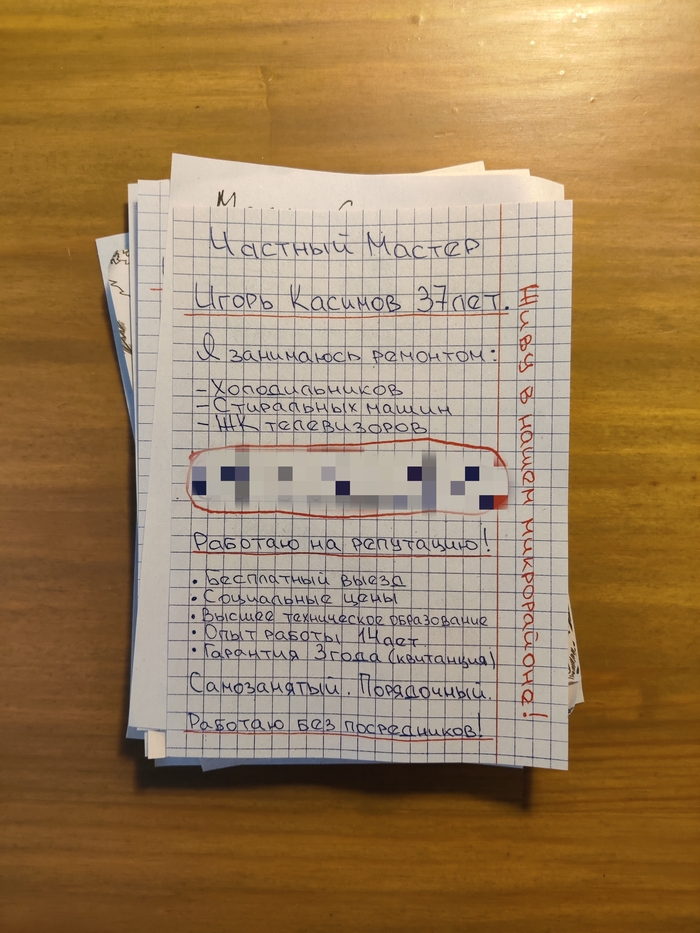 Частный Мастер
Игорь Касимов 37лет.
Я занимаюсь ремонтом:
- Холодильников
- Стиральных машин
- ЖК телевизоров
Работаю на репутацию!
• Бесплатный выезд
• Социальные цены
• Высшее техническое образование
• Опыт работы 14лет
• Гарантия 3года (квитанция)
Самозанятый. Порядочный.
Работаю без посредников!
Живу в нашем микрорайоне!